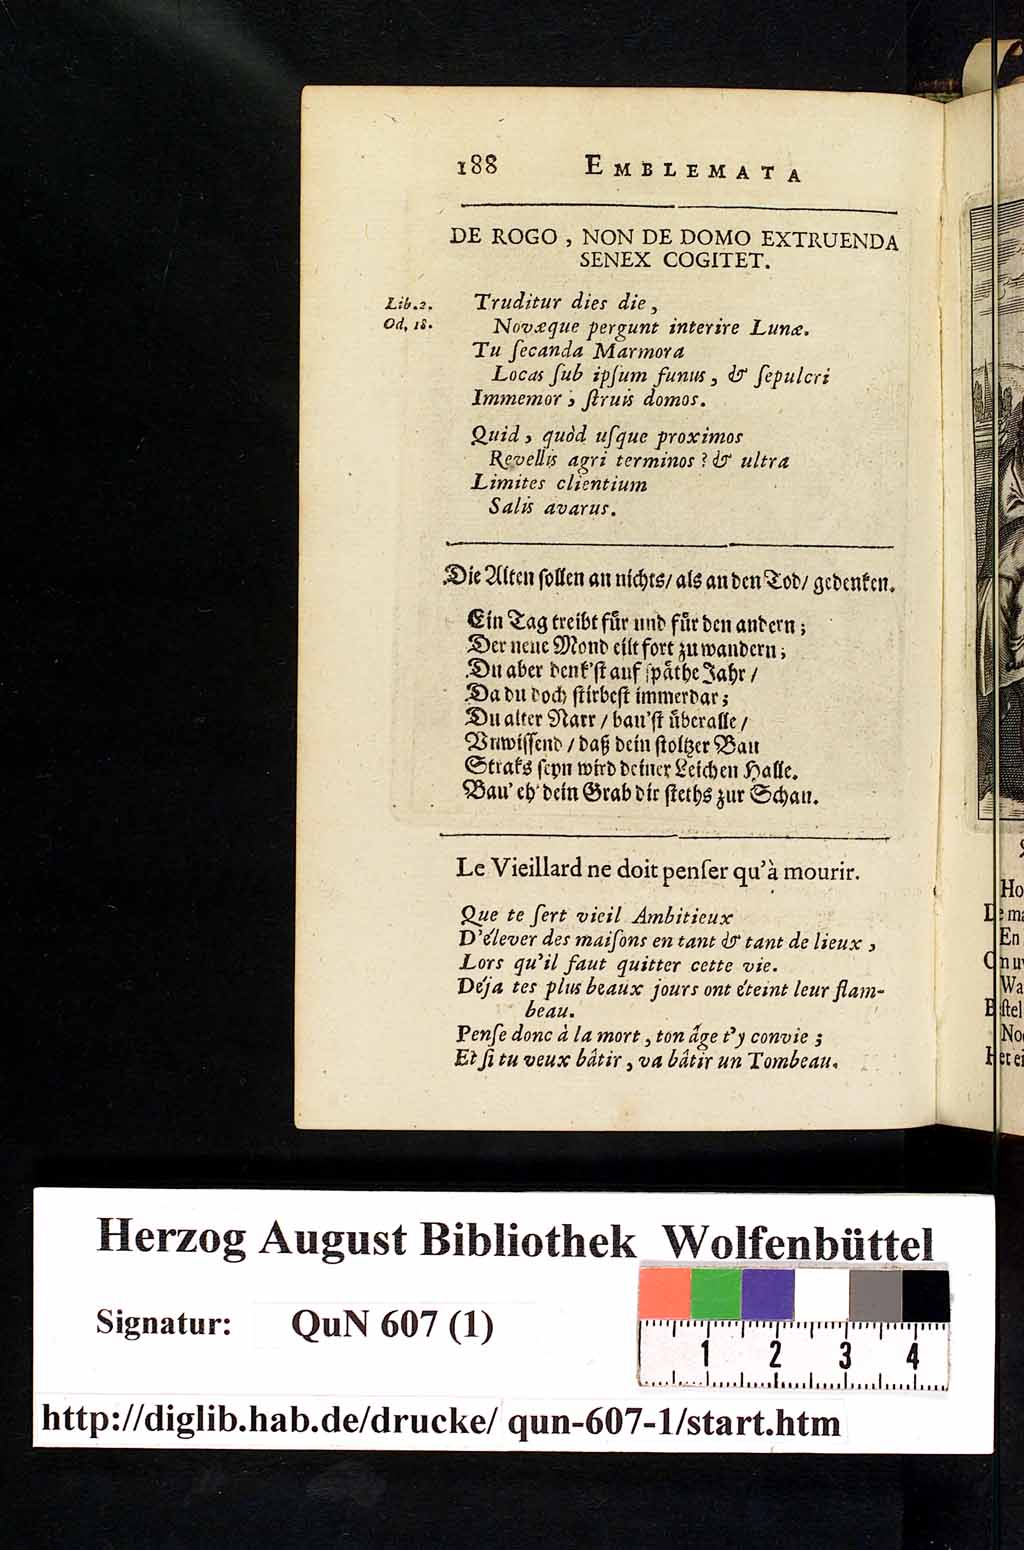 188 EMBLEMATA
DE ROGO, NON DE DOMO EXTRUENDA
SENEX COGITET.
Lib. 2.
Od, 18.
Truditur dies die,
Novæque pergunt interire Lunæ.
Tu ſecanda Marmora
Locas ſub ipſum funus, & ſepulcri
Immemor, ſtruis domos.
Quid, quòd uſque proximos
Revellis agri terminos? & ultra
Limites clientium
Salis avarus.
Die Alten ſollen an nichts/ als an den Tod/ gedenken.
Ein Tag treibt fůr und fůr den andern;
Der neue Mond eilt fort zu wandern;
Du aber denk'ſt auf ſpåthe Jahr/
Da du doch ſtirbeſt immerdar;
Du alter Narr/ bau'ſt ůberalle/
Vnwiſſend/ daß dein ſtoltzer Bau
Straks ſeyn wird deiner Leichen Halle.
Bau' eh' dein Grab dir ſteths zur Schau.
Le Vieillard ne doit penſer qu'à mourir.
Que te ſert vieil Ambitieux
D'élever des maiſons en tant & tant de lieux,
Lors qu'il faut quitter cette vie.
Déja tes plus beaux jours ont éteint leur flam-
beau.
Penſe donc à la mort, ton âge t'y convie;
Et ſi tu veux bâtir, va bâtir un Tombeau.
Ho
De ma
En
On uv
Wa
Beſtel
Noc
Het ei
Herzog August Bibliothek Wolfenbüttel
Signatur: QuN 607 (1)
1 2 3 4
http://diglib.hab.de/drucke/ qun-607-1/start.htm